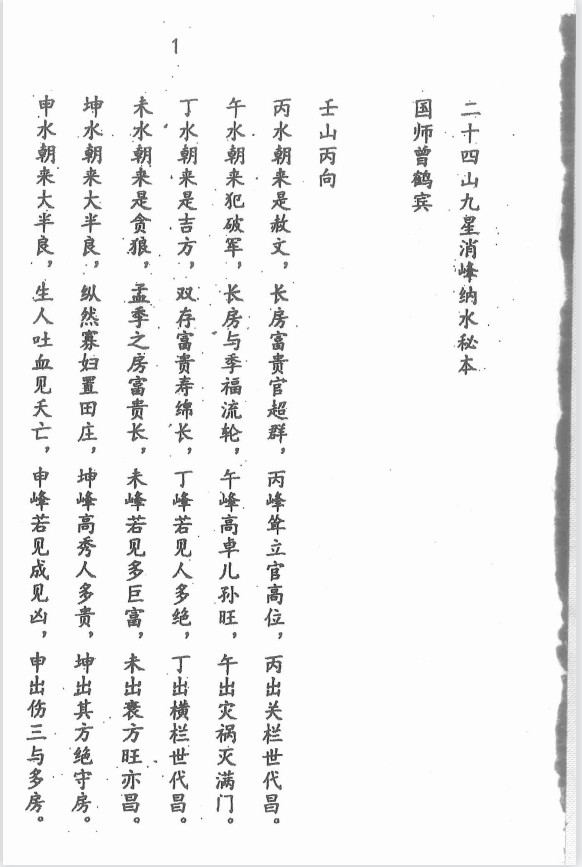 1
二十四山九星消峰纳水秘本
国师曾鹤宾
壬山丙向
丙水朝来是赦文，长房富贵官超群，丙峰耸立官高位，丙出关栏世代昌。
午水朝来犯破军，长房与季福流轮，午峰高卓儿孙旺，午出灾祸灭满门。
丁水朝来是吉方，双存富贵寿绵长，丁峰若见人多绝，丁出横栏世代昌。
未水朝来是贪狼，孟季之房富贵长，未峰若见多巨富，未出衰方旺亦昌。
坤水朝来大半良，纵然寡妇置田庄，坤峰高秀人多贵，坤出其方绝守房。
申水朝来大半良，生人吐血见夭亡，申峰若见成见凶，申出伤三与多房。